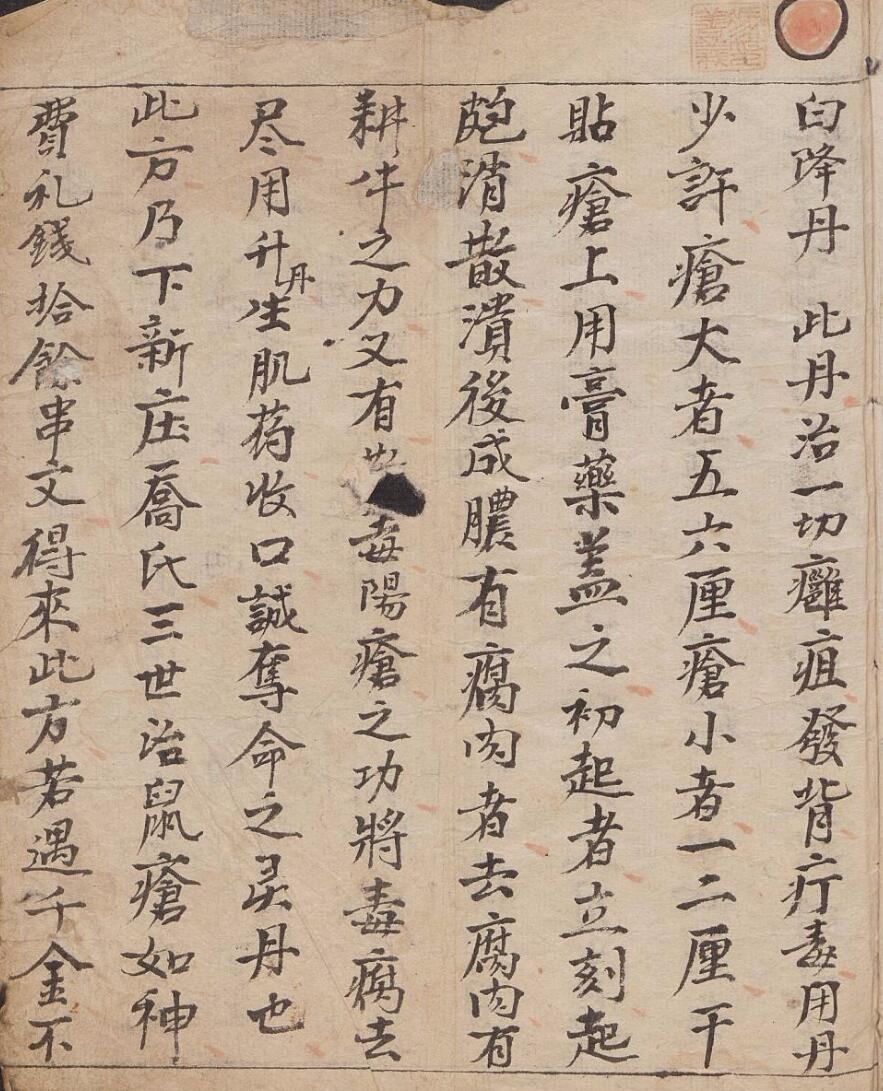 白降丹　此丹治一切癰疽發背疔毒用丹
少許瘡大者五六厘瘡小者一二厘干
貼瘡上用膏藥盖之初起者立刻起
皰消散潰後成膿有腐肉者去腐肉有
耕牛之力又有 毒陽瘡之功將毒腐去
尽用升丹生肌药收口誠奪命之灵丹也
此方乃下新庄喬氏三世治鼠瘡如神
費礼錢拾餘串文得來此方若遇千金不